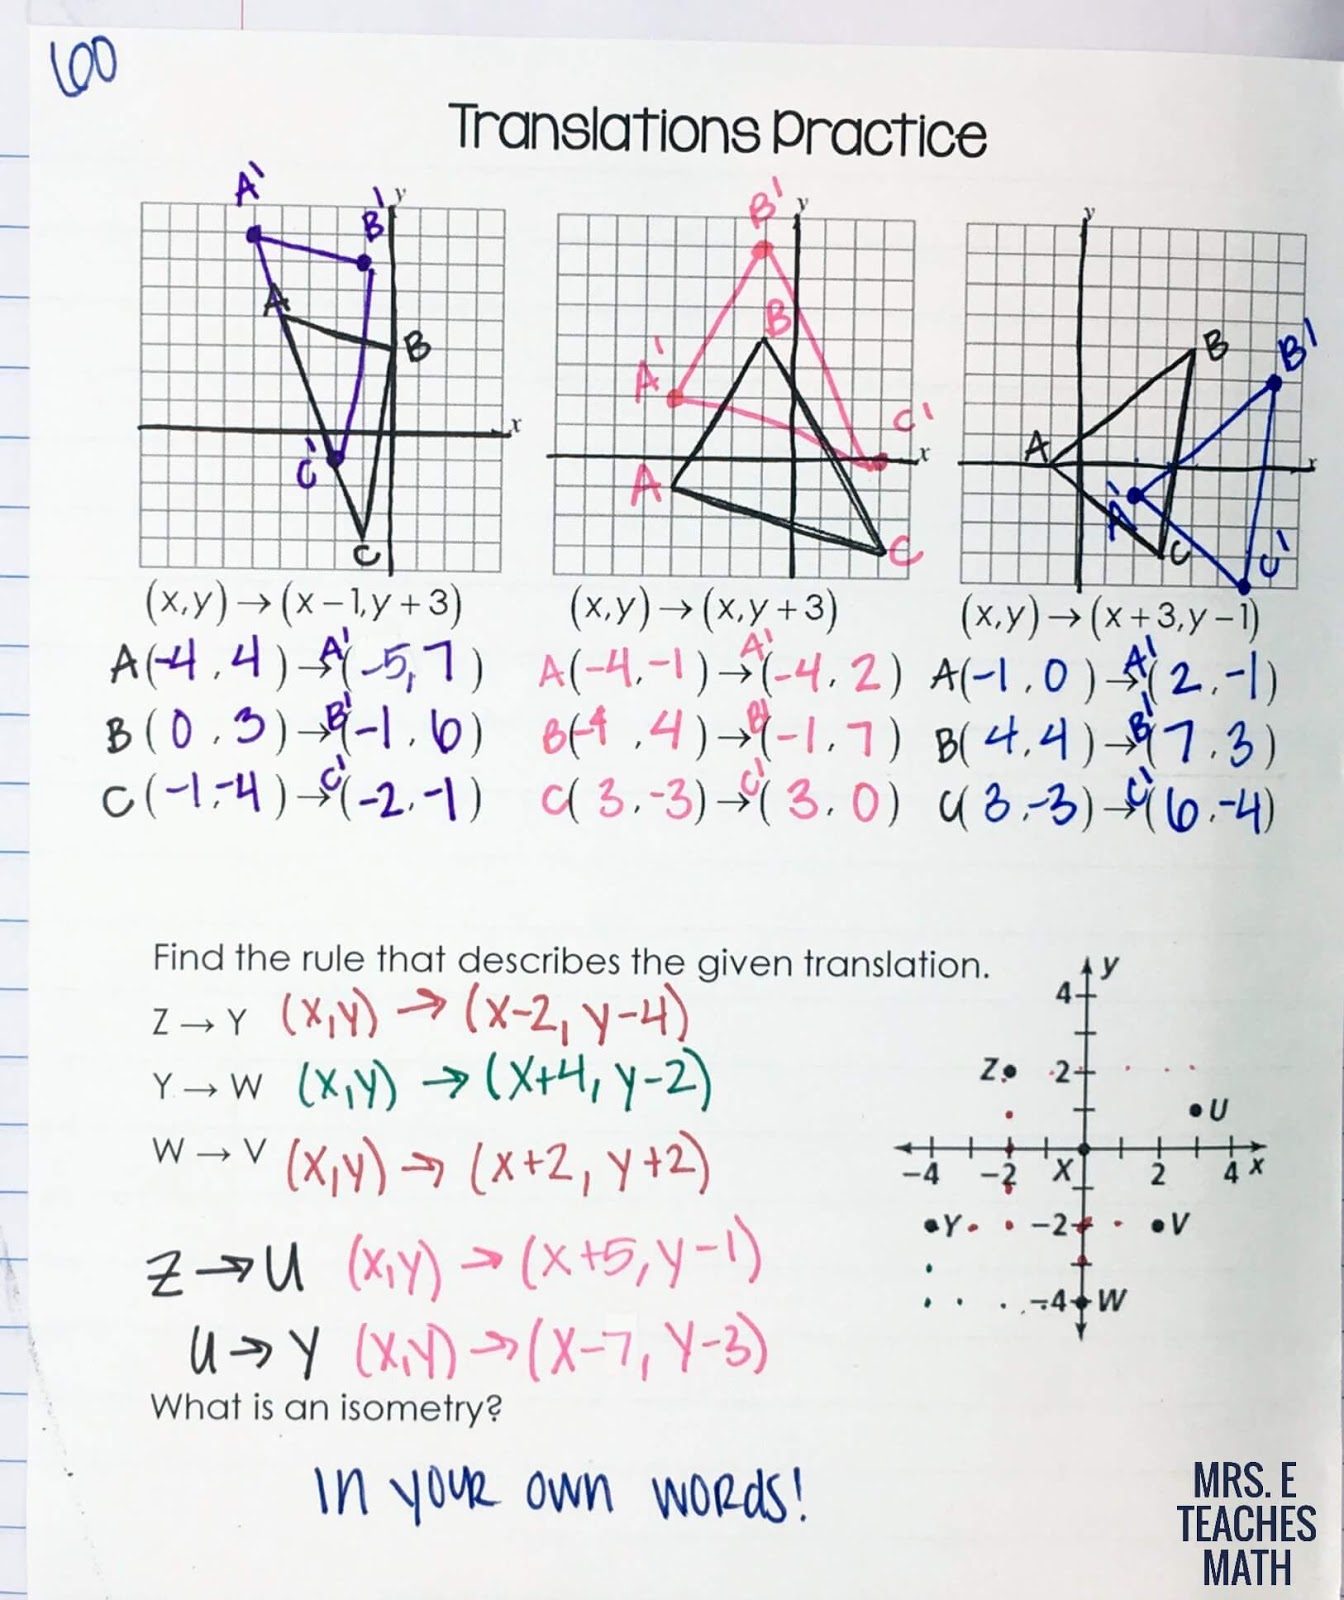 60
Translations Practice
A' B' y
A B
x
C'
C
B' y
B
A' C'
x
A C
y
B B'
A x
A' C C'
(x,y)→(x−1,y+3) (x,y)→(x,y+3) (x,y)→(x+3,y−1)
A(-4,4)→A'(-5,7) A(-4,-1)→A'(-4,2) A(-1,0)→A'(2,-1)
B(0,3)→B'(-1,6) B(-1,4)→B'(-1,7) B(4,4)→B'(7,3)
C(-1,-4)→C'(-2,-1) C(3,-3)→C'(3,0) C(3,-3)→C'(6,-4)
Find the rule that describes the given translation.
Z → Y (x,y) → (x-2, y-4)
Y → W (x,y) → (x+4, y-2)
W → V (x,y) → (x+2, y+2)
Z → U (x,y) → (x+5, y-1)
U → Y (x,y) → (x-7, y-3)
y
4
Z 2
U
−4 −2 X 2 4 x
Y −2 V
−4 W
What is an isometry?
In your own words!
MRS. E
TEACHES
MATH